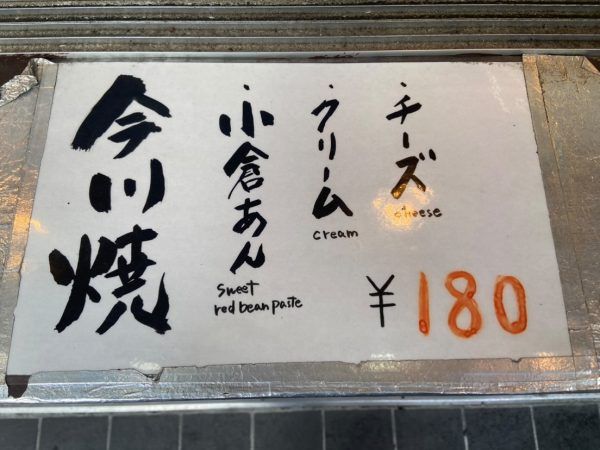 ・チーズ
cheese
・クリーム
cream
・小倉あん
sweet
red bean paste
今川焼
¥180